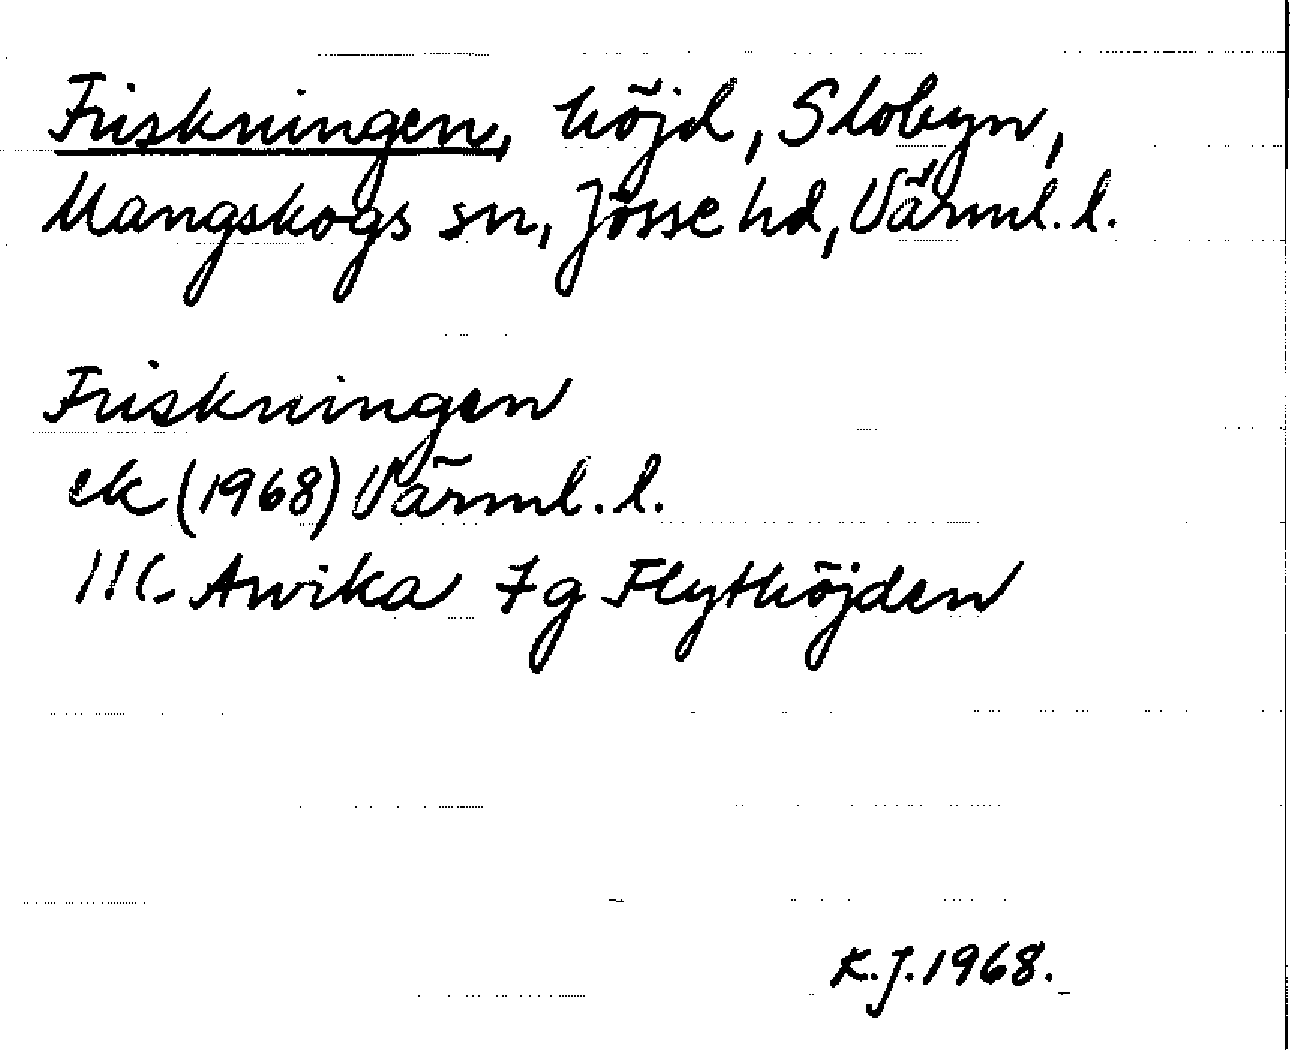 Friskningen, höjd, Slobyn,
Mangskogs sn, Jösse hd, Värml. l.
Friskningen
ek (1968) Värml. l.
11C. Arvika 7g Flythöjden
K.J. 1968.